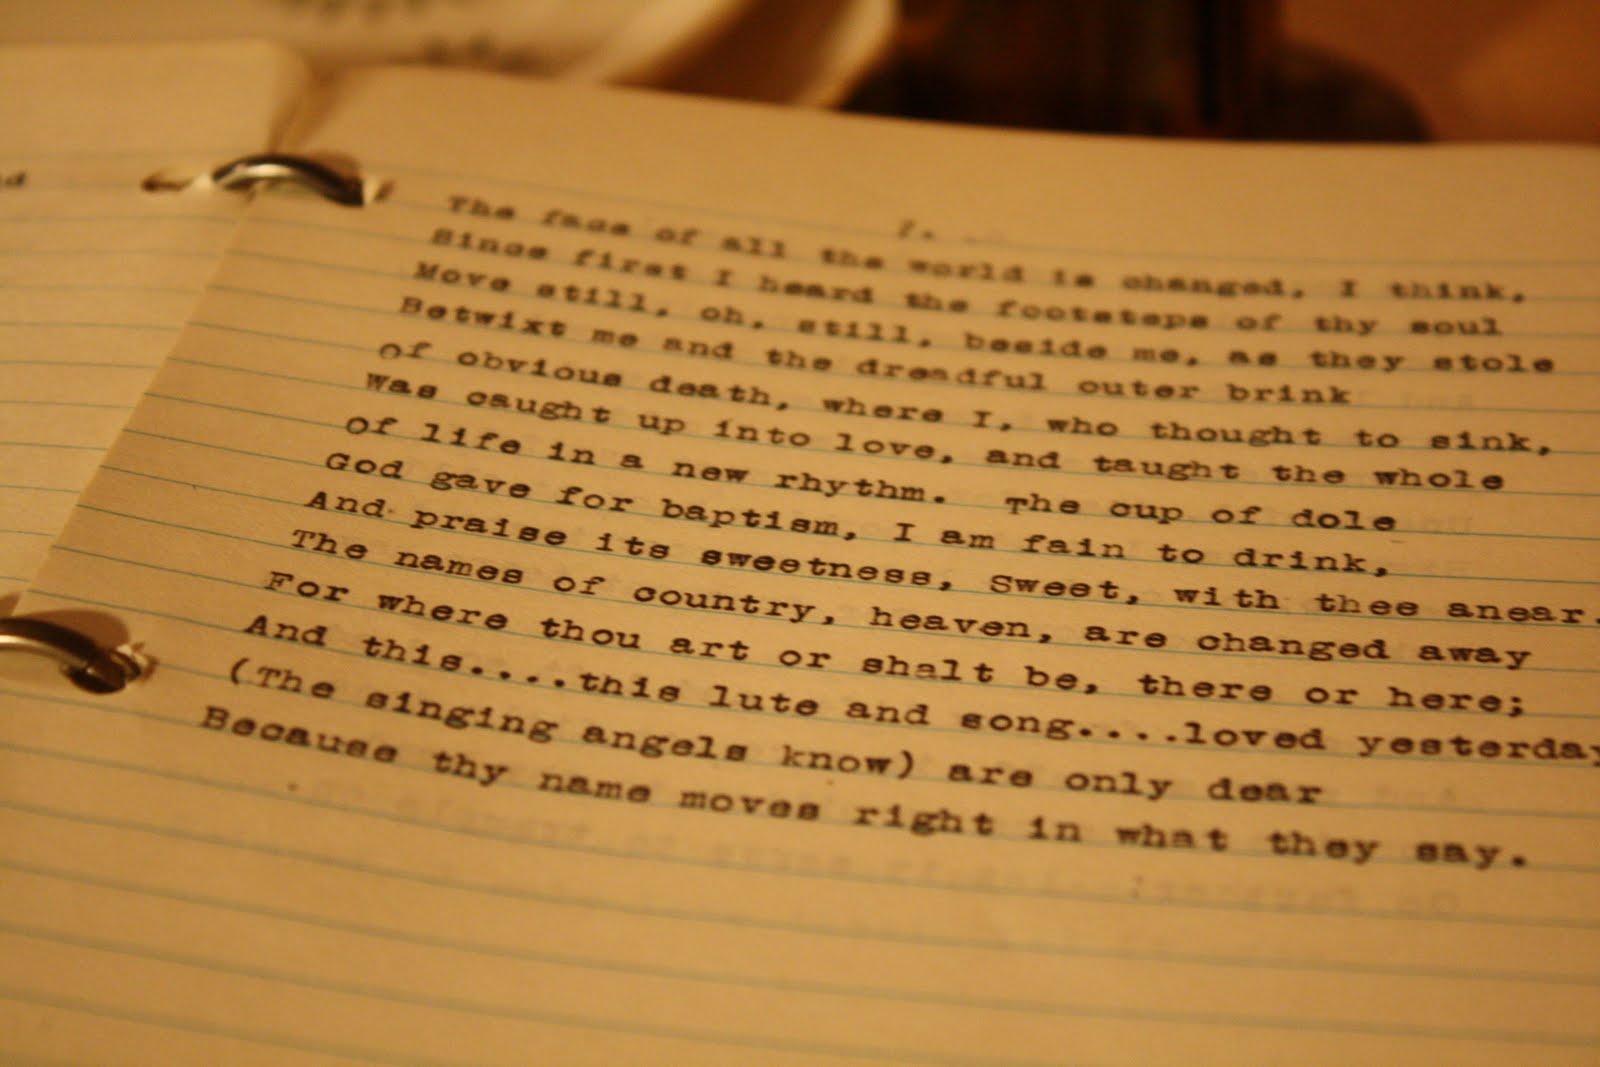 7.
The face of all the world is changed, I think,
Since first I heard the footsteps of thy soul
Move still, oh, still, beside me, as they stole
Betwixt me and the dreadful outer brink
Of obvious death, where I, who thought to sink,
Was caught up into love, and taught the whole
Of life in a new rhythm. The cup of dole
God gave for baptism, I am fain to drink,
And praise its sweetness, Sweet, with thee anear.
The names of country, heaven, are changed away
For where thou art or shalt be, there or here;
And this....this lute and song....loved yesterday
(The singing angels know) are only dear
Because thy name moves right in what they say.